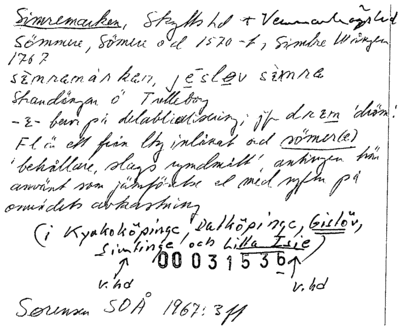 Simremarken, Skytts hd + Vemmenhögs hd
Sömmere, Sömere od 1570-t, Simbre Mången
1767
sɛmramárkan, jésləv sɛmrə
Strandängen ö Trelleborg
-ɛ- beror på delabialisering; jfr drɛm 'dröm'.
Fl i ett från lty inlånat ord sömer(e)
'behållare, slags rymdmått' antingen här
använt som jämförelse el med syftn på
områdets avkastning
(i Kyrkoköpinge, Dalköpinge, Gislöv,
Simlinge och Lilla Isie)
00031536
v. hd v. hd
Sörensen SOÅ 1967: 3 ff